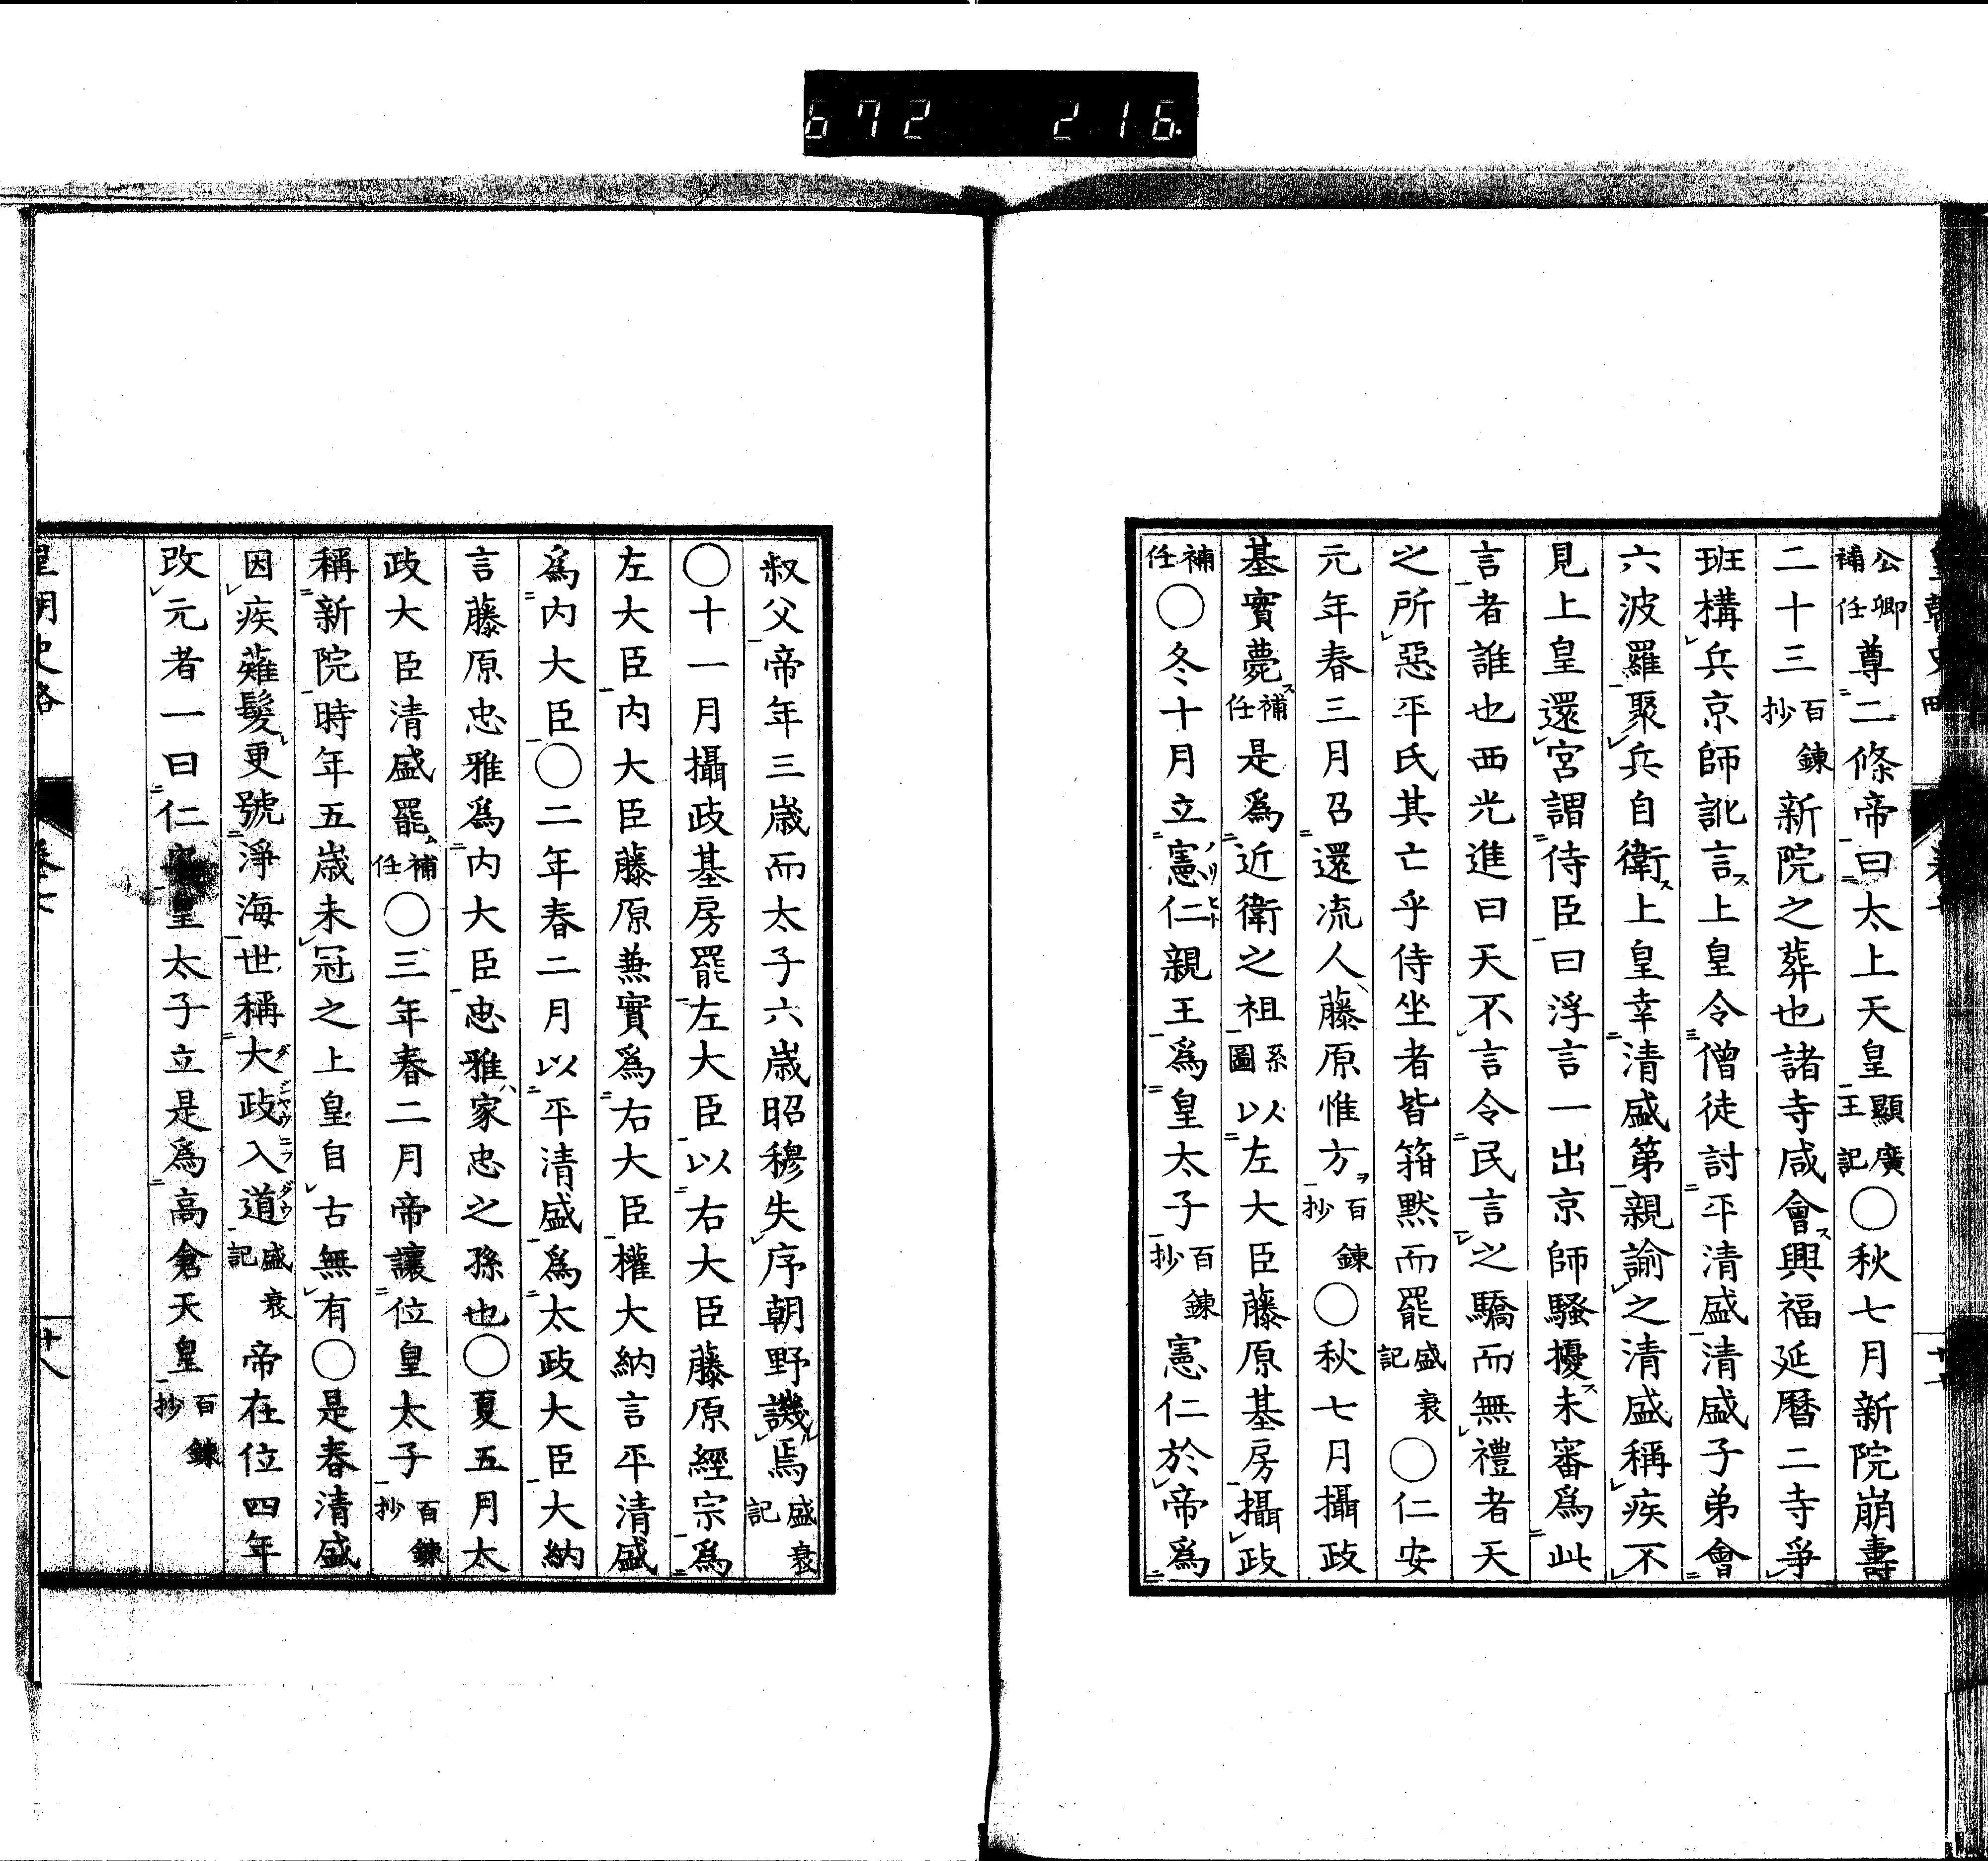 672 216.
公卿補任尊二條帝曰太上天皇顯廣王記○秋七月新院崩壽
二十三百鍊抄新院之葬也諸寺咸會興福延曆二寺爭
班構兵京師訛言上皇令僧徒討平清盛清盛子弟會
六波羅聚兵自衛上皇幸清盛第親諭之清盛稱疾不
見上皇還宮謂侍臣曰浮言一出京師騷擾未審爲此
言者誰也西光進曰天不言令民言之驕而無禮者天
之所惡平氏其亡乎侍坐者皆箝默而罷盛衰記○仁安
元年春三月召還流人藤原惟方百鍊抄○秋七月攝政
基實薨補任是爲近衛之祖系圖以左大臣藤原基房攝政
補任○冬十月立憲仁親王爲皇太子百鍊抄憲仁於帝爲
叔父帝年三歲而太子六歲昭穆失序朝野譏焉盛衰記
○十一月攝政基房罷左大臣以右大臣藤原經宗爲
左大臣內大臣藤原兼實爲右大臣權大納言平清盛
爲內大臣○二年春二月以平清盛爲太政大臣大納
言藤原忠雅爲內大臣忠雅家忠之孫也○夏五月太
政大臣清盛罷補任○三年春二月帝讓位皇太子百鍊抄
稱新院時年五歲未冠之上皇自古無有○是春清盛
因疾薙髮更號淨海世稱大政入道盛衰記帝在位四年
改元者一曰仁安皇太子立是爲高倉天皇百鍊抄
皇朝史略 卷七 十八